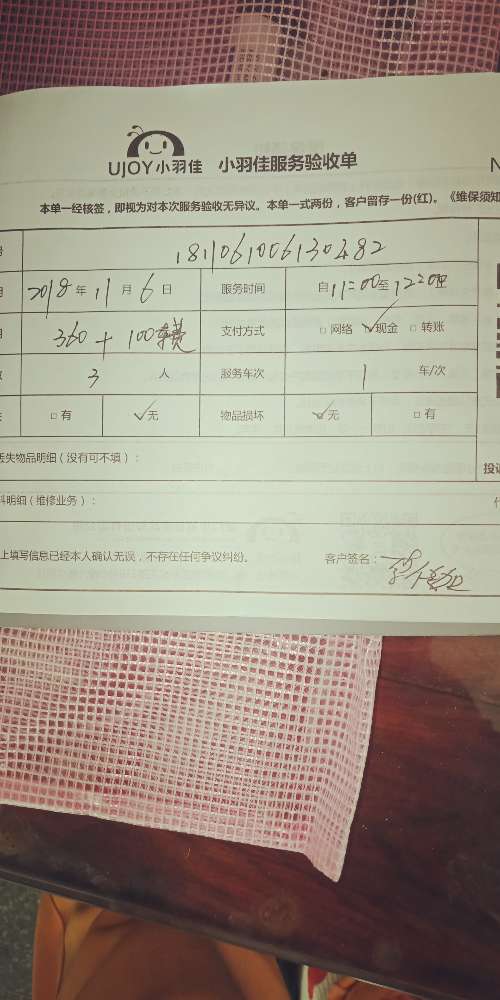 UJOY小羽佳 小羽佳服务验收单
N
本单一经核签，即视为对本次服务验收无异议。本单一式两份，客户留存一份(红)。《维保须知
号 1811061006130482
期 2018年 11月 6日 服务时间 自11:00至12:20
用 360+100车费 支付方式 □网络 ☑现金 □转账
数 3 人 服务车次 1 车/次
失 □有 ☑无 物品损坏 ☑无 □有
丢失物品明细（没有可不填）： 投诉
料明细（维修业务）：
上填写信息已经本人确认无误，不存在任何争议纠纷。 客户签名：